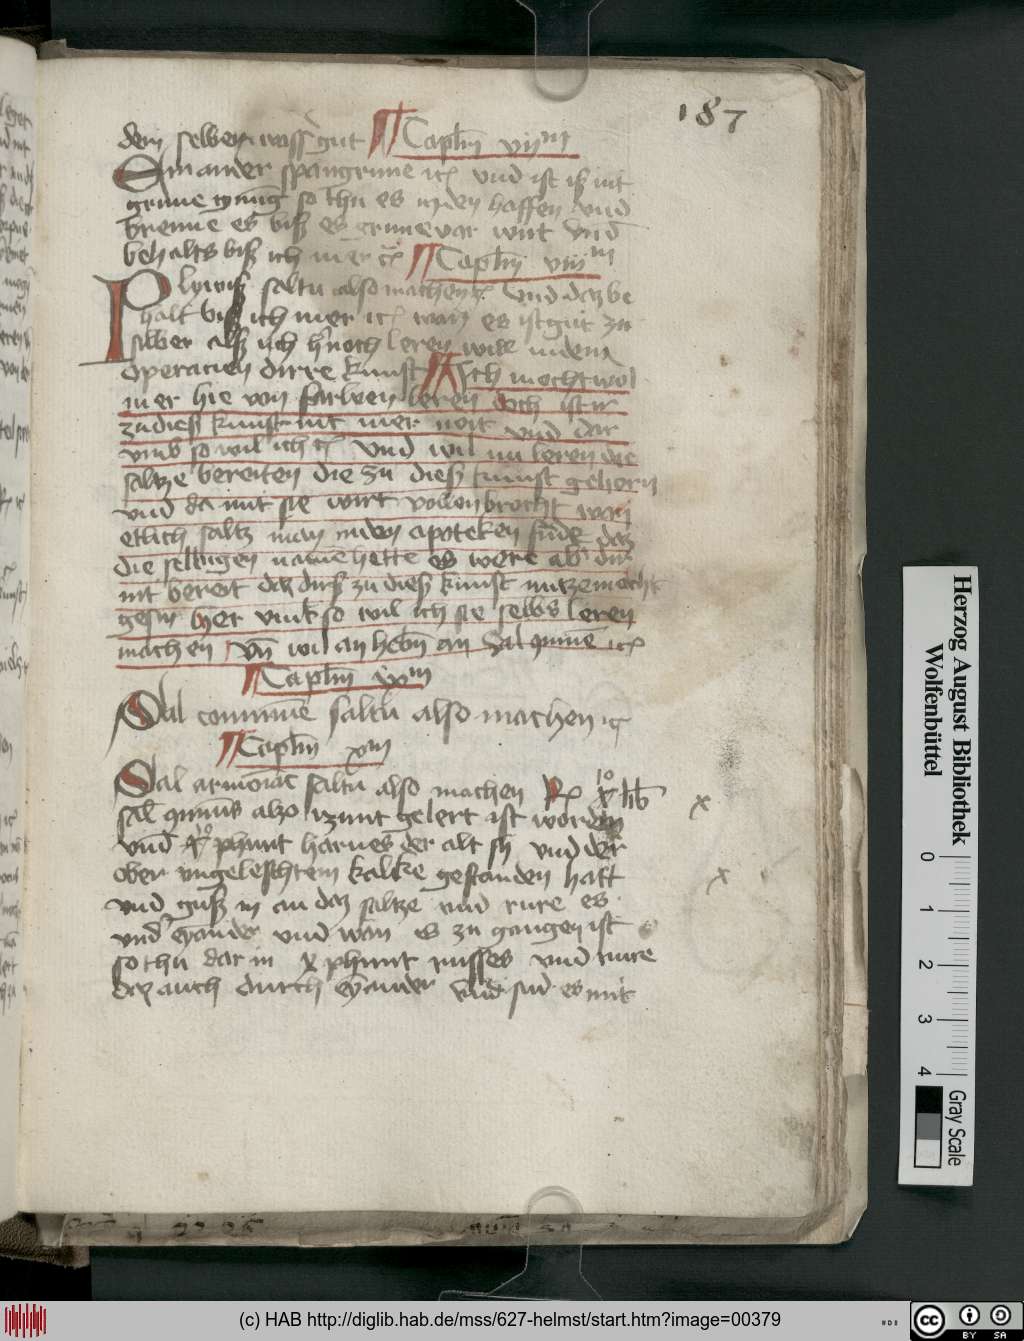 187
dem selben wasser gut Caplm viim
Ein ander spangrune etc vnd ist iß nit
grune gnug so thu es in den haffen vnd
brenne es biß es grunevar wirt vnd
behalts biß ich mer etc Caplm viiim
Plywiß saltu also machen etc vnd daz be
halt biß ich mer etc wan es ist gut zu
silber alß ich hernoch leren will in den
operacien dirre kunst Ich mocht wol
mer hie von farben leren doch ist ir
zu dieß kunst nit mer noit vnd dar
vmb so wil ich etc vnd wil nu leren die
saltze bereiten die zu dieß kunst gehorn
vnd da mit sie wirt vollenbrocht wan
etlich saltz man in den apoteken funde daz
die selbigen namen hette es were aber dir
nit bereit daz dirß zu dieß kunst nutze mocht
gesin her vmb so wil ich sie selbs leren
machen vn wil an heben an Sal
Caplm ixm
Sal commune saltu also machen etc
Caplm xm
Sal armoniac saltu also machen Rx x lib
sal also itzunt gelert ist worden
vnd phunt harnes der alt sy vnd der
ober vngeleschtem kalke gestanden hatt
vnd guß in an daz saltze vnd rure es
vnder eynander vnd wan es zu gangen ist
so thu dar in x phunt russes vnd rure
daz auch durch eynander vnd sud es mit
Herzog August Bibliothek
Wolfenbüttel
0 1 2 3 4
Gray Scale
(c) HAB http://diglib.hab.de/mss/627-helmst/start.htm?image=00379
cc BY SA